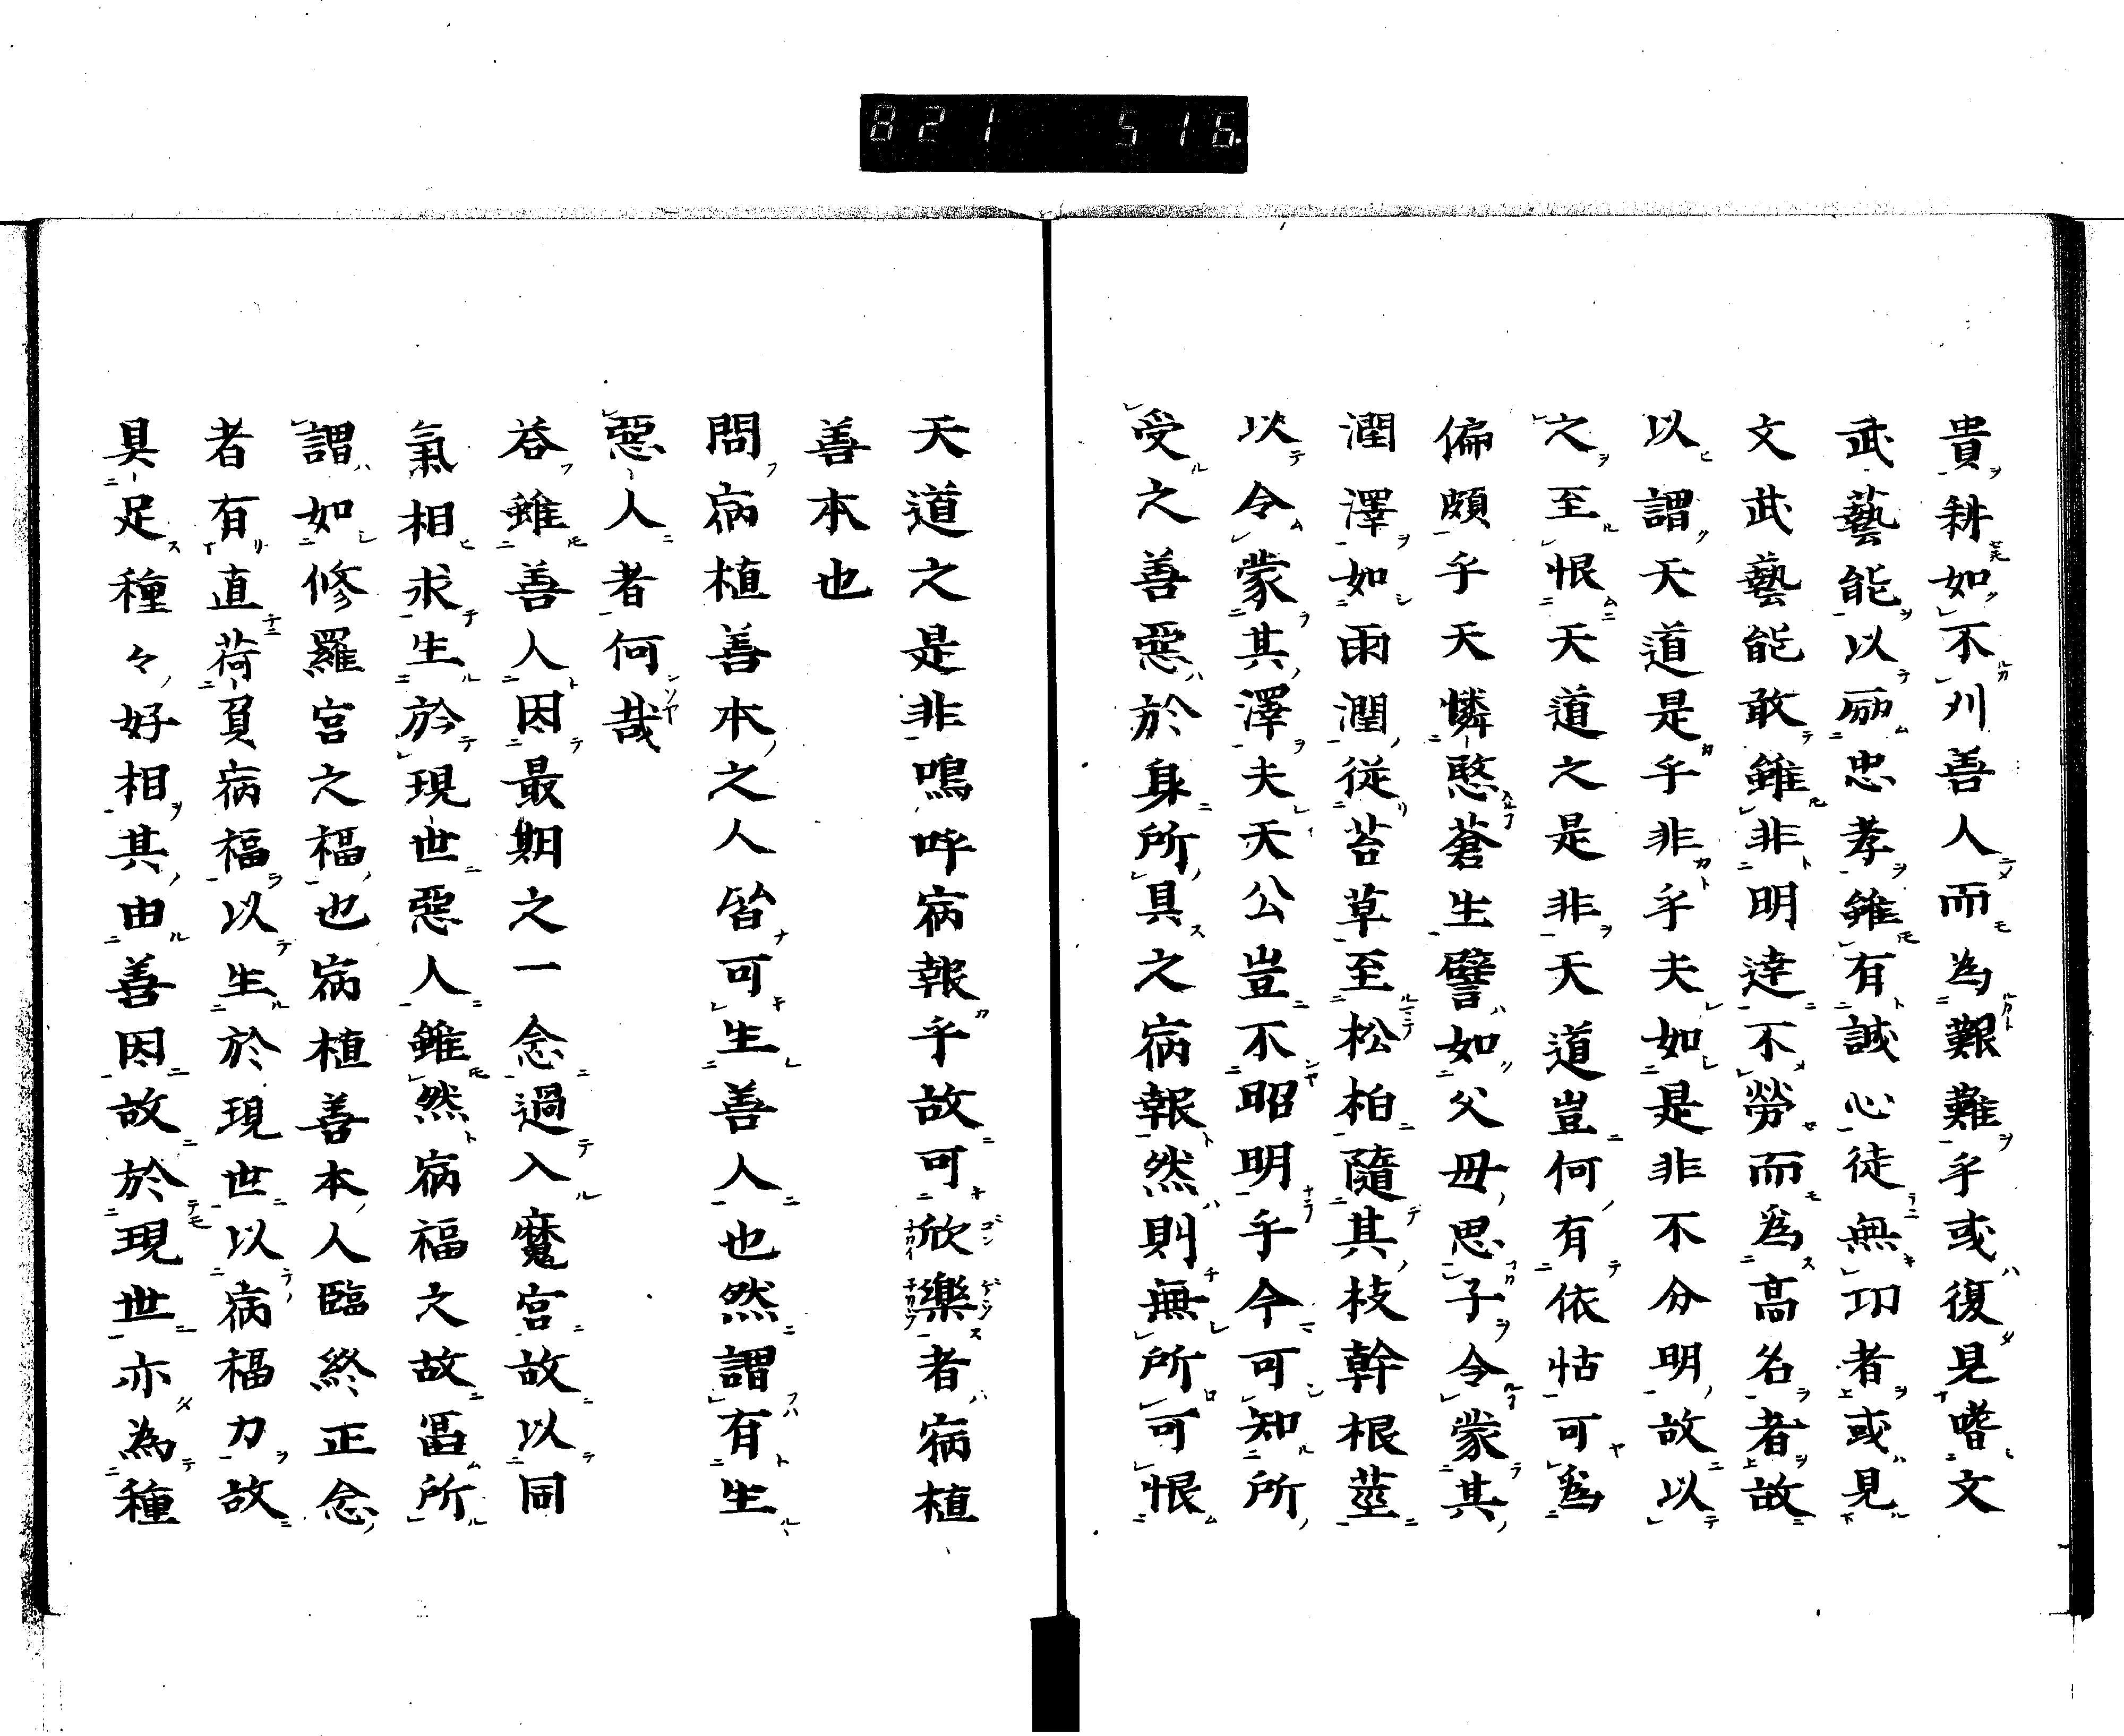 821 516
貴耕如不刈善人而為艱難乎或復見嗜文
武藝能以励忠孝雖有誠心徒無功者或見
文武藝能敢雖非明達不勞而為高名者故
以謂天道是乎非乎夫如是非不分明故以
之至恨天道之是非天道豈何有依怙可為
偏頗乎天憐愍蒼生譬如父毋思子令蒙其
潤澤如雨潤從苔草至松柏隨其枝幹根莖
以令蒙其澤夫天公豈不昭明乎今可知所
受之善惡於身所具之病報然則無所可恨
天道之是非嗚呼病報乎故可欣樂者病植
善本也
問病植善本之人皆可生善人也然謂有生
惡人者何哉
答雖善人因最期之一念過入魔宮故以同
氣相求生於現世惡人雖然病福之故啚所
謂如修羅宮之福也病植善本人臨終正念
者有直荷負病福以生於現世以病福力故
具足種々好相其由善因故於現世亦為種